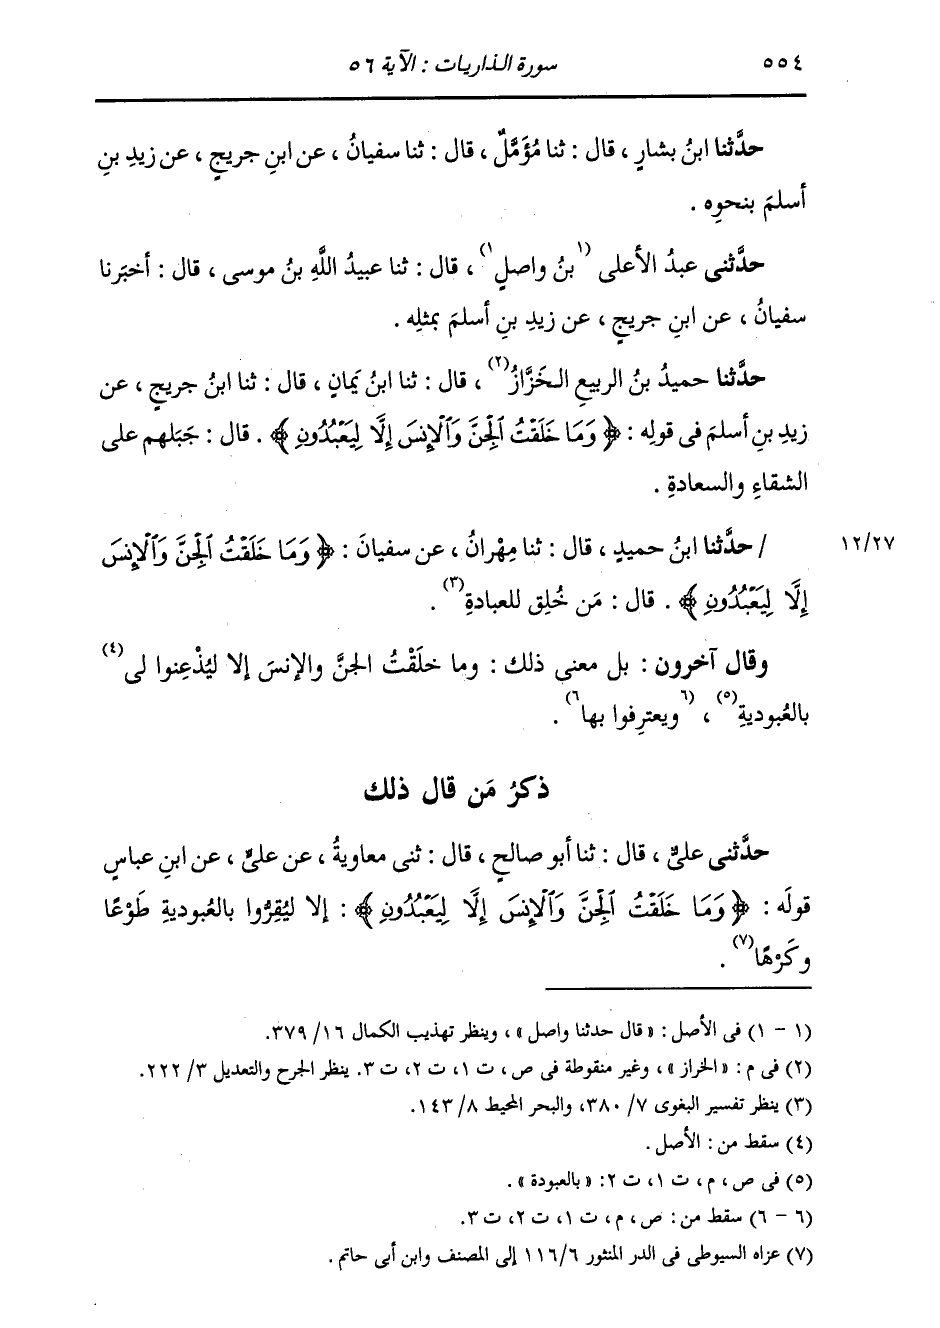 ٥٥٤ سورة الذاريات : الآية ٥٦
حدَّثنا ابنُ بشارٍ ، قال : ثنا مُؤَمَّلٌ ، قال : ثنا سفيانُ ، عن ابنِ جريجٍ ، عن زيدِ بنِ
أسلمَ بنحوِه .
حدَّثنى عبدُ الأعلى (١بنُ واصلٍ١) ، قال : ثنا عبيدُ اللَّهِ بنُ موسى ، قال : أخبَرنا
سفيانُ ، عن ابنِ جريجٍ ، عن زيدِ بنِ أسلمَ بمثلِه .
حدَّثنا حميدُ بنُ الربيعِ الخَزَّازُ(٢) ، قال : ثنا ابنُ يَمانٍ ، قال : ثنا ابنُ جريجٍ ، عن
زيدِ بنِ أسلمَ فى قولِه : ﴿ وَمَا خَلَقْتُ ٱلْجِنَّ وَٱلْإِنسَ إِلَّا لِيَعْبُدُونِ ﴾ . قال : جَبَلهم على
الشقاءِ والسعادةِ .
/ حدَّثنا ابنُ حميدٍ ، قال : ثنا مِهْرانُ ، عن سفيانَ : ﴿ وَمَا خَلَقْتُ ٱلْجِنَّ وَٱلْإِنسَ ١٢/٢٧
إِلَّا لِيَعْبُدُونِ ﴾ . قال : مَن خُلِق للعبادةِ(٣) .
وقال آخرون : بل معنى ذلك : وما خلَقْتُ الجنَّ والإنسَ إلا ليُذْعِنوا لى(٤)
بالعُبوديةِ(٥) ، (٦ويعترِفوا بها٦) .
ذكرُ مَن قال ذلك
حدَّثنى علىٌّ ، قال : ثنا أبو صالحٍ ، قال : ثنى معاويةُ ، عن علىٍّ ، عن ابنِ عباسٍ
قولَه : ﴿ وَمَا خَلَقْتُ ٱلْجِنَّ وَٱلْإِنسَ إِلَّا لِيَعْبُدُونِ ﴾ : إلا ليُقِرُّوا بالعُبوديةِ طَوْعًا
وكَرْهًا(٧) .
(١ - ١) فى الأصل : « قال حدثنا واصل » ، وينظر تهذيب الكمال ١٦/ ٣٧٩.
(٢) فى م : « الخراز » ، وغير منقوطة فى ص ، ت ١، ت ٢، ت ٣. ينظر الجرح والتعديل ٣/ ٢٢٢.
(٣) ينظر تفسير البغوى ٧/ ٣٨٠، والبحر المحيط ٨/ ١٤٣.
(٤) سقط من : الأصل .
(٥) فى ص ، م ، ت ١، ت ٢: « بالعبودة » .
(٦ - ٦) سقط من : ص ، م ، ت ١، ت ٢، ت ٣.
(٧) عزاه السيوطى فى الدر المنثور ١١٦/٦ إلى المصنف وابن أبى حاتم .